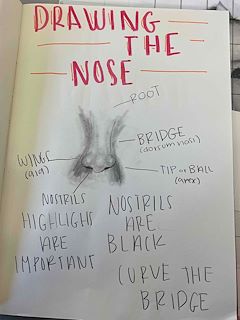 DRAWING
THE
NOSE
ROOT
BRIDGE
(dorsum nasi)
WINGS
(ala)
TIP or BALL
(apex)
NOSTRILS
HIGHLIGHS
ARE
IMPORTANT
NOSTRILS
ARE
BLACK
CURVE THE
BRIDGE